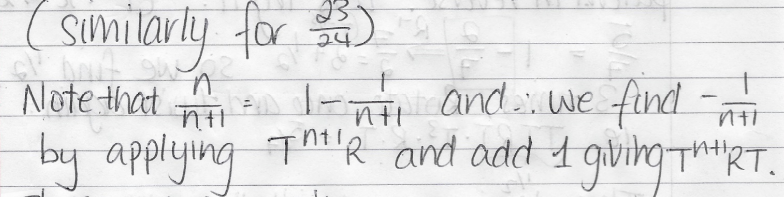 (similarly for 23/24)
Note that n/n+1 = 1 - 1/n+1 and ∴ we find - 1/n+1
by applying T^n+1 R and add 1 giving T^n+1 RT.